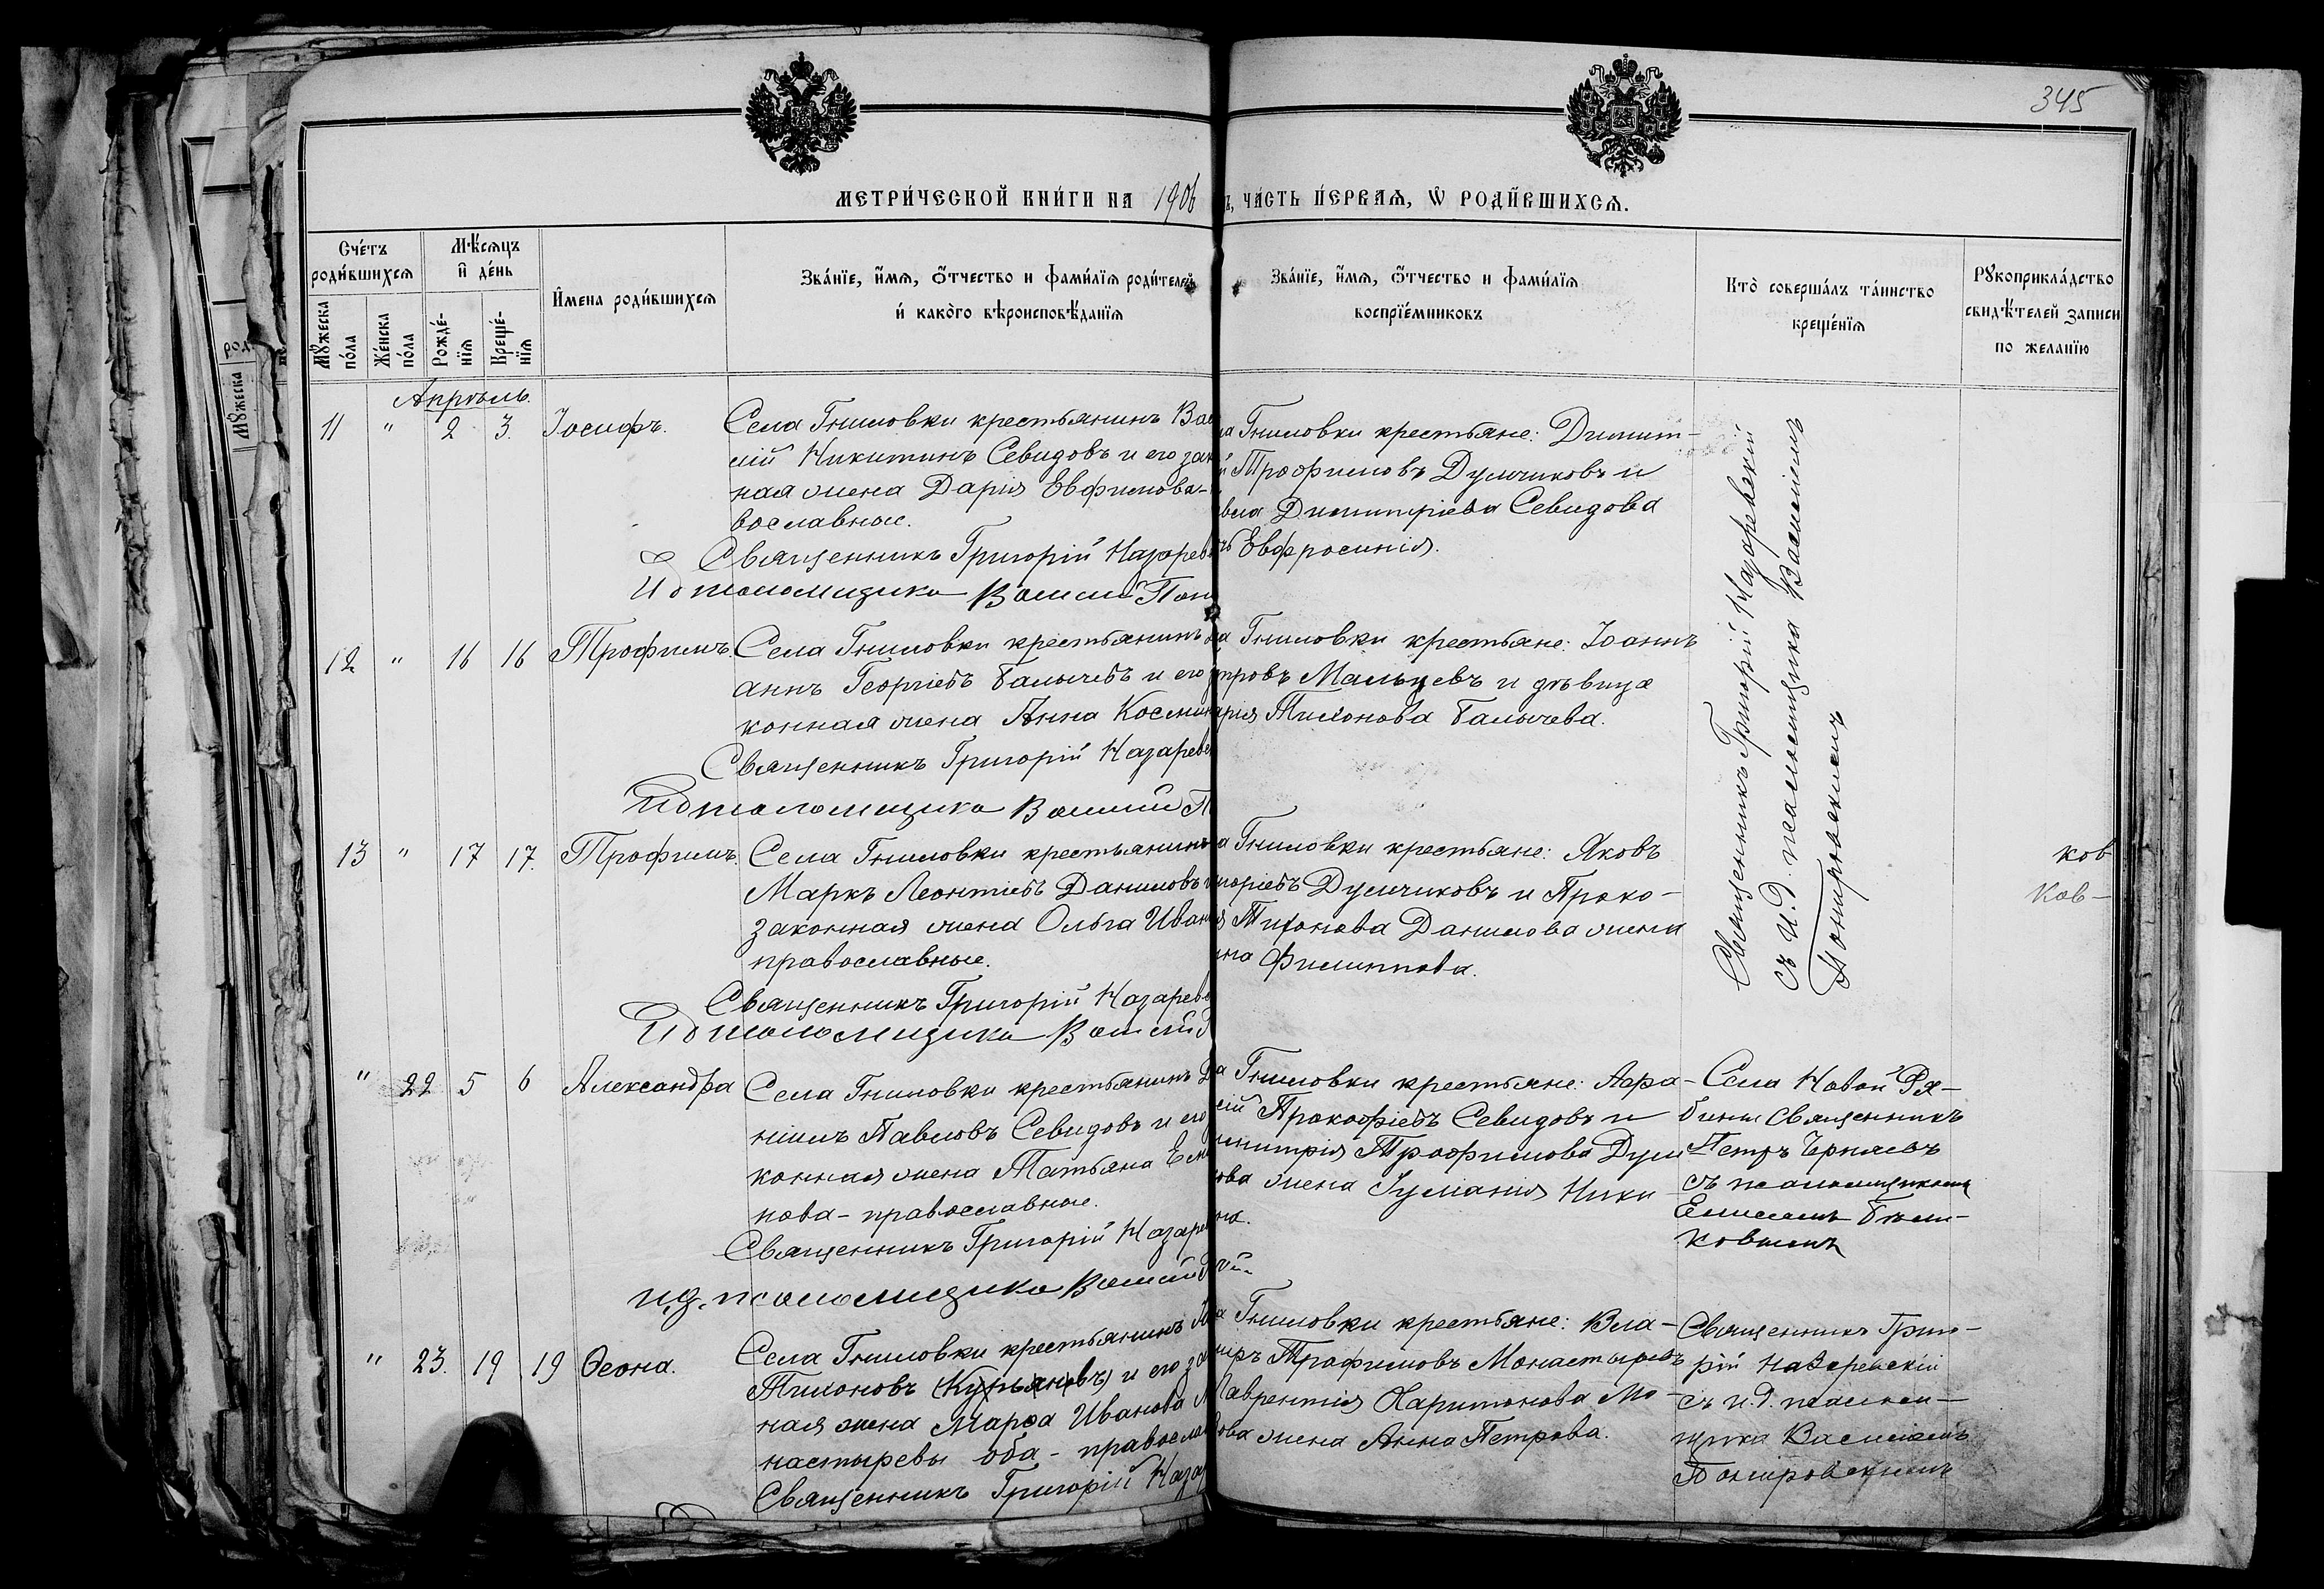 345
МЕТРИ́ЧЕСКОЙ КНИ́ГИ НА 1906
Ъ, ЧА́СТЬ ПЕ́РВАЯ, Ѡ РОДИ́ВШИХСЯ.
Сче́тъ родившихся
Мѣ́сяцъ и́ де́нь
Му́жеска по́ла
Же́нска по́ла
Рожде́нїя
Креще́нїя
И́мена роди́вшихся
Зва́нїе, и́мя, о́тчество и фами́лїя роди́телей,
и́ како́го вѣроисповѣ́данїя
Зва́нїе, и́мя, о́тчество и фами́лїя
воспрїе́мниковъ
Кто̀ соверша́лъ та́инство
креще́нїя
Рукоприкла́дство
свидѣ́телей записи
по жела́нїю
род.
Му́жеска
Апрѣль.
11 " 2 3. Іосифъ.
Села Гниловки крестьянинъ Ва
лій Никитинъ Севидовъ и его зак
ная жена Дарія Евфимова-
вославные.
Священникъ Григорій Назарев
И д псаломщика Василій Пон
а Гниловки крестьяне: Димит-
й Трофимовъ Думчиковъ и
вла Димитріева Севидова
ъ Евфросинія.
Священникъ Григорій Назаревскій
съ И.д. псаломщика Василіемъ
12 " 16 16 Трофимъ.
Села Гниловки крестьянинъ
аннъ Георгіевъ Балычевъ и его
конная жена Анна Косми
Священникъ Григорій Назарев
И д псаломщика Василій П
а Гниловки крестьяне: Іоаннъ
тровъ Мальцевъ и дѣвица
арія Тихонова Балычева.
13 " 17 17. Трофимъ.
Села Гниловки крестьянинъ
Маркъ Леонтіевъ Даниловъ и
законная жена Ольга Иван
православные.
Священникъ Григорій Назарев
И д псаломщика Василій
а Гниловки крестьяне: Яковъ
игоріевъ Думчиковъ и Проко-
я Тихонова Данилова жена
на Филиппова.
ков
ков-
" 22 5 6 Александра
Села Гниловки крестьянинъ Д
ніилъ Павловъ Севидовъ и его
конная жена Татьяна Ем
нова - православные.
Священникъ Григорій Назарев
и.д. псаломщика Василій
а Гниловки крестьяне:
сій Прокофіевъ Севидовъ и
имитрія Трофимова Дум
ова жена Іуліанія Ники
на.
Села Новой Ря-
бины Священникъ
Петръ Черняевъ
съ псаломщикомъ
ковымъ
" 23. 19 19 Ѳеона.
Села Гниловки крестьянинъ
Тихоновъ (Курьяновъ) и его за
ная жена Марѳа Иванова М
настыревы оба - правосла
Священникъ Григорій Наза
а Гниловки крестьяне: Вла-
иръ Трофимовъ Монастыревъ
Лаврентія Харитонова Мо-
ова жена Анна Петрова.
Священникъ Григо-
рій Назаревскій
съ и.д. псалом-
щика Василіемъ